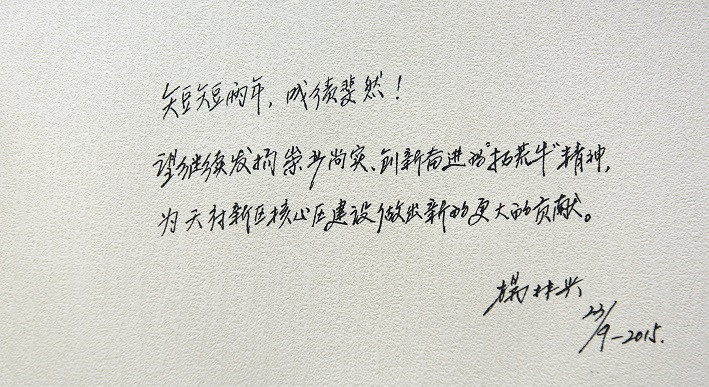 短短两年，成绩斐然！
望继续发扬崇尚实、创新奋进的"拓荒牛"精神，
为天府新区核心区建设做出新的更大的贡献。
23/9-2015.